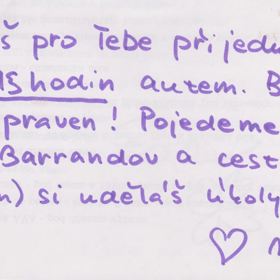 š pro Tebe přijedu
15 hodin autem. B
praven! Pojedeme
Barrandov a cest
m) si uděláš úkoly